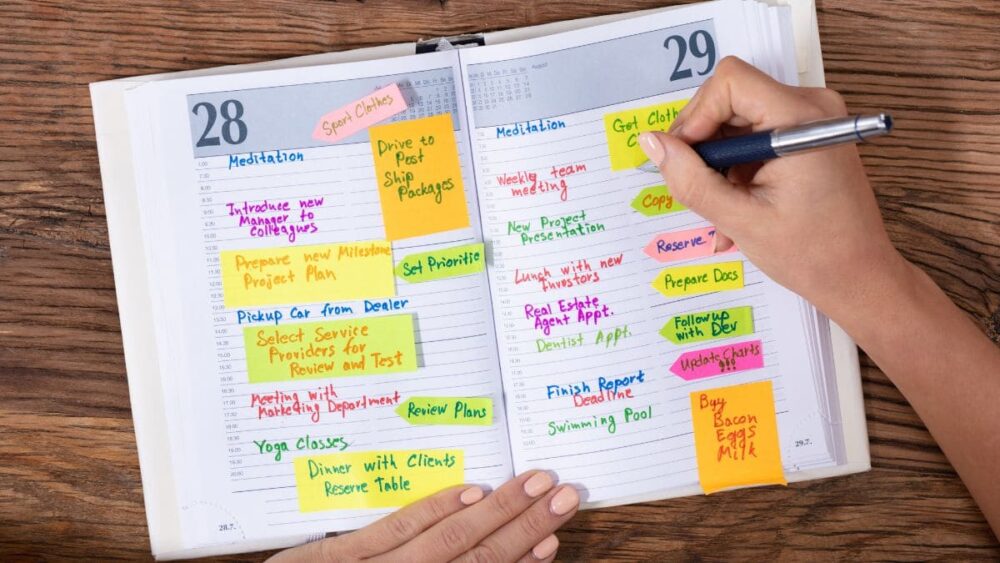 28
Sport Clothes
Meditation
Drive to
Post
Ship
Packages
Introduce new
Manager to
Colleagues
Prepare new Milestone
Project Plan
Set Prioritie
Pickup Car from Dealer
Select Service
Providers for
Review and Test
Meeting with
Marketing Department
Review Plans
Yoga Classes
Dinner with Clients
Reserve Table
28.7.
August
29
Meditation
Get Cloth
Weekly team
meeting
Copy
New Project
Presentation
Reserve
Lunch with new
Investors
Prepare Docs
Real Estate
Agent Appt.
Follow up
with Dev
Dentist Appt.
Update Charts
!!!
Finish Report
Deadline
Swimming Pool
Buy
Bacon
Eggs
Milk
29.7.